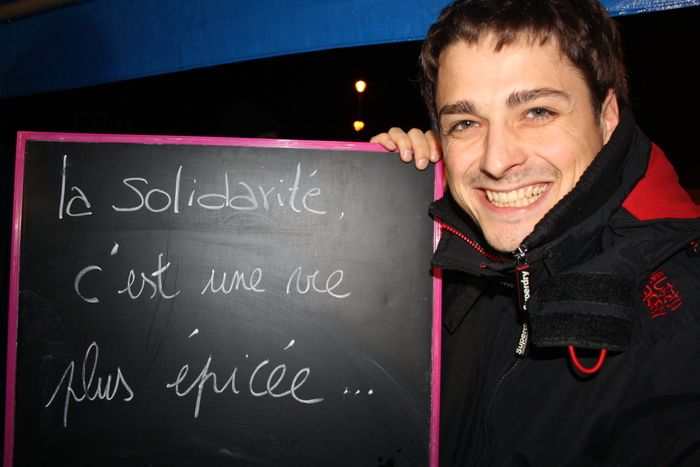 la Solidarité,
c'est une vie
plus épicée...
Superdry
Superdry